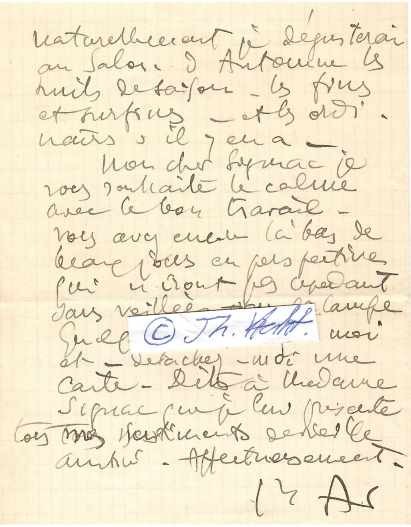 naturellement je dégusterai
au Salon d'Automne les
fruits de saison - les fins
et surfins - et les ordi-
naires s'il y en a -
Mon cher Signac je
vous souhaite le calme
avec le bon travail -
vous avez encore là bas de
beaux jours en perspective
qui n'iront pas cependant
sans veillée la lampe
© Th. Hecht.
moi
et - détachez - moi une
carte - Dites à Madame
Signac que je lui présente
tous mes sentiments de vieille
amitié. Affectueusement.